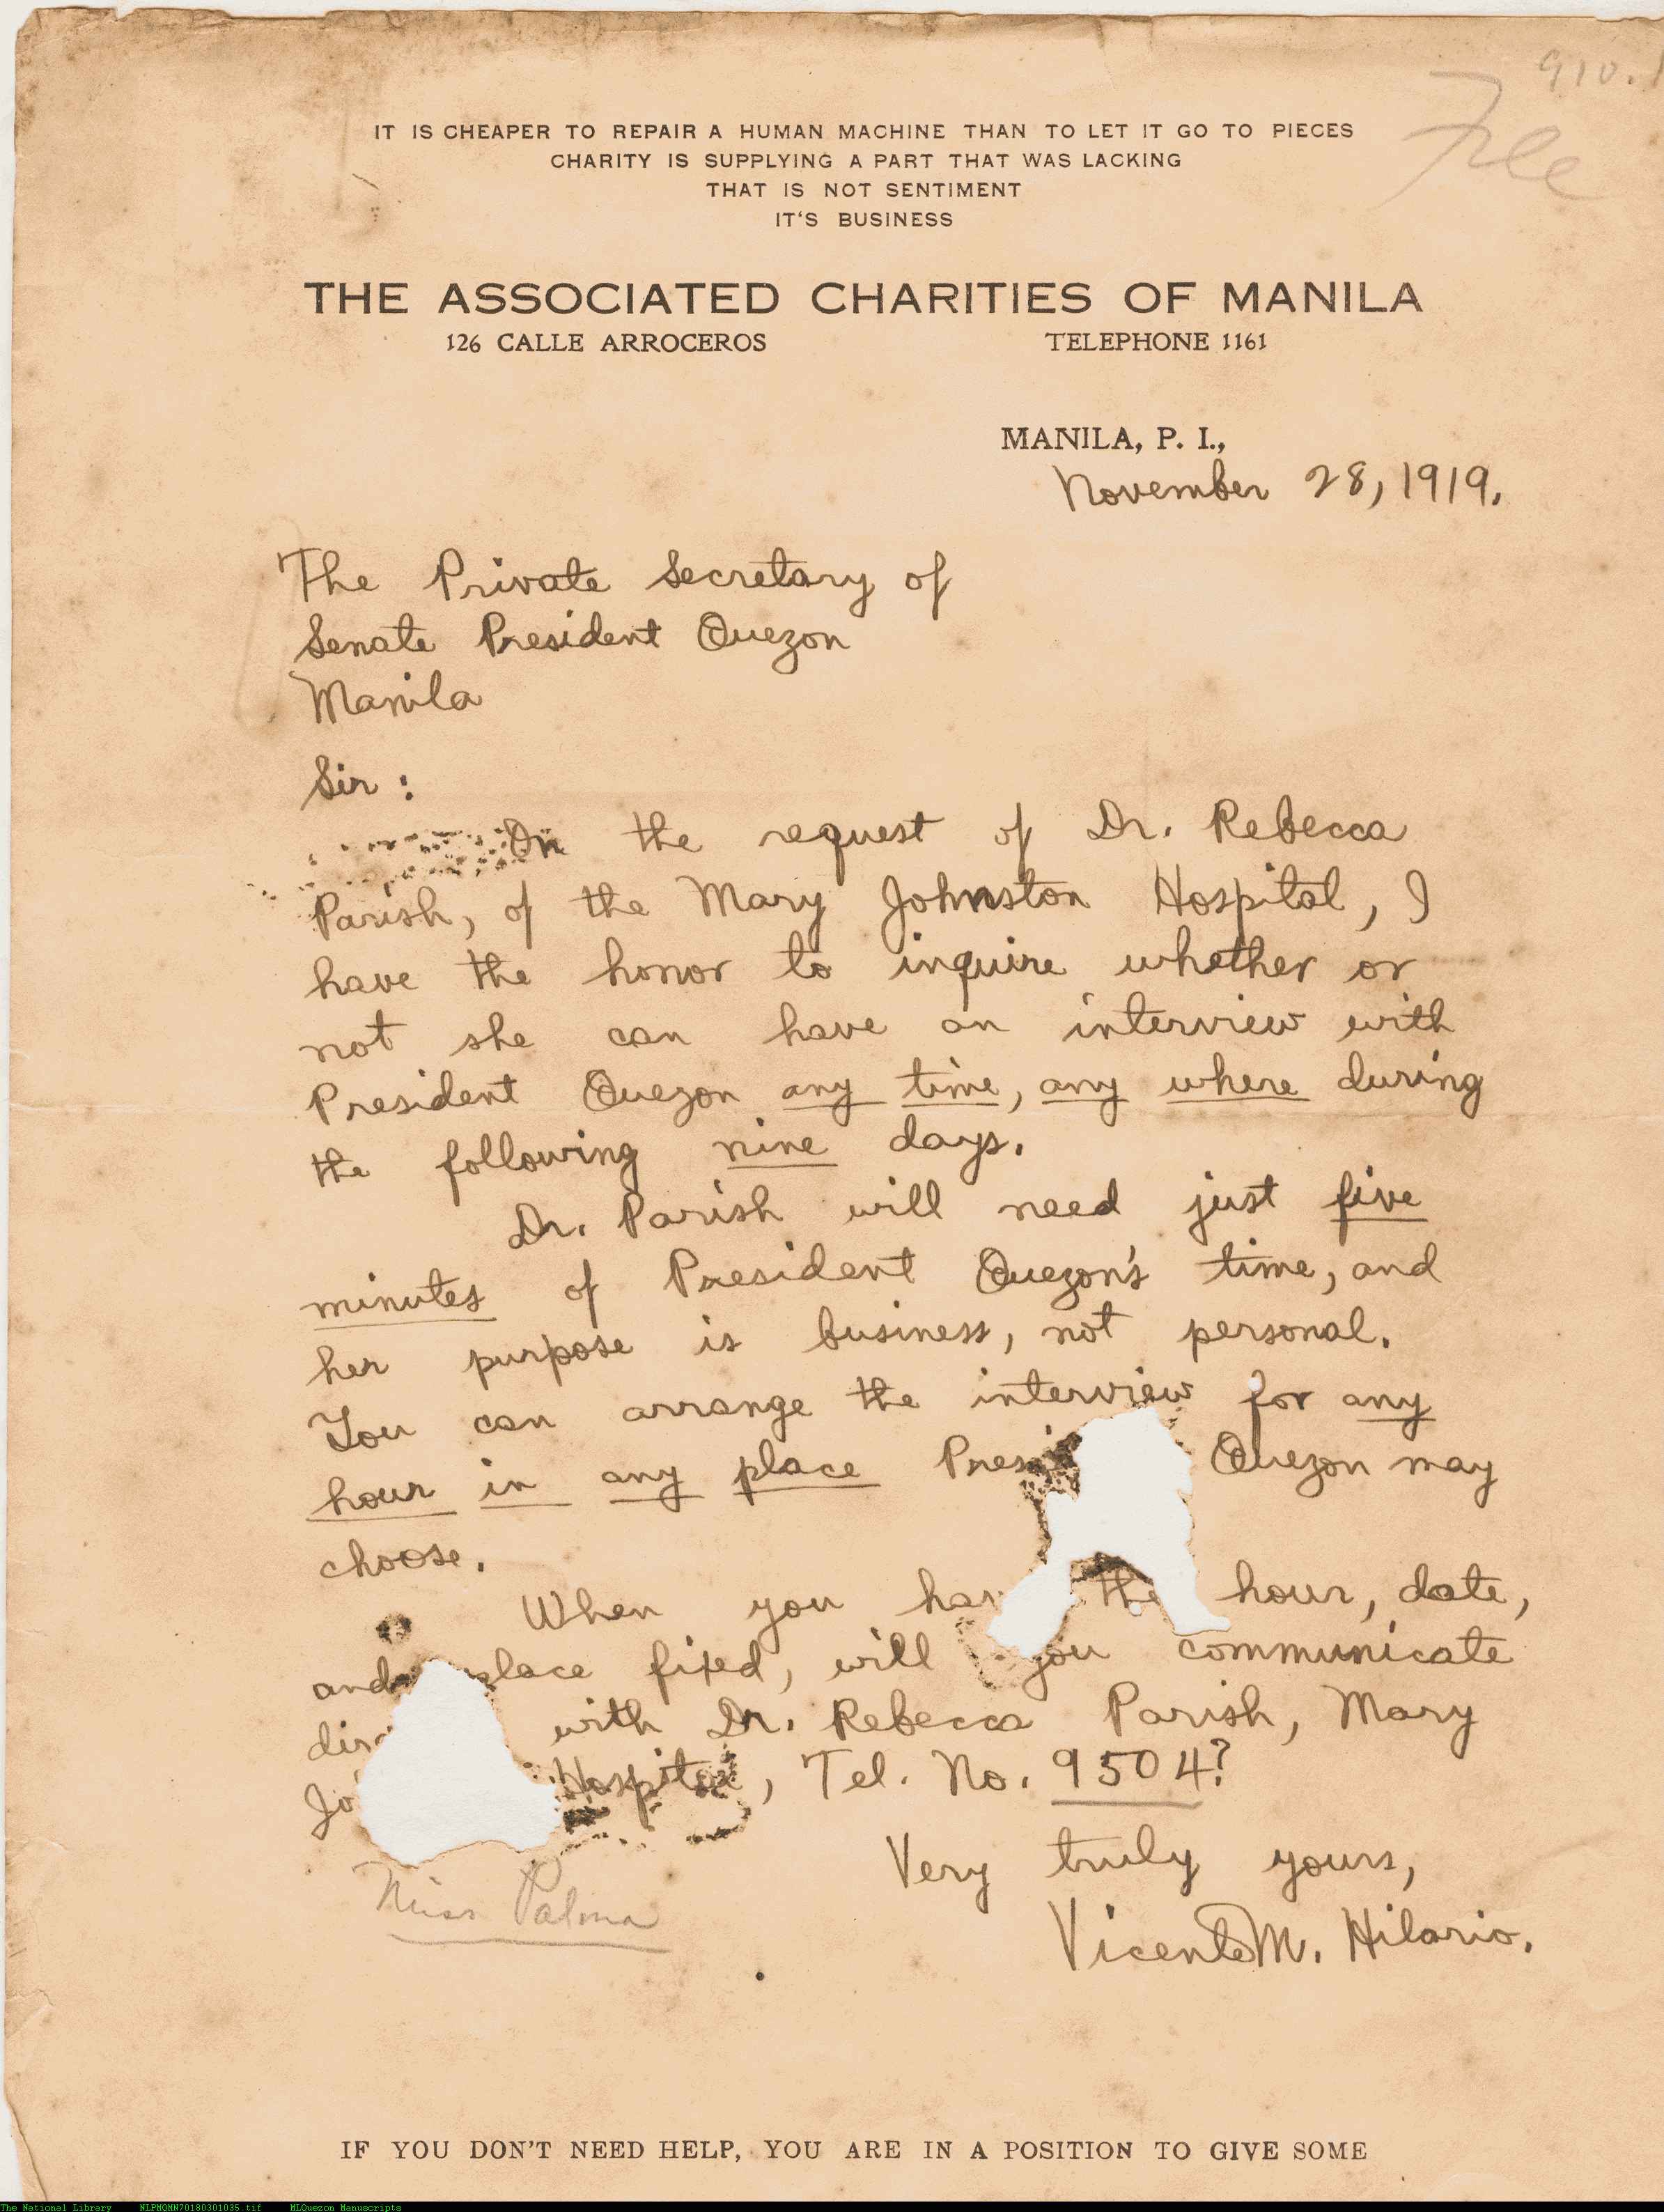 910.1
File
IT IS CHEAPER TO REPAIR A HUMAN MACHINE THAN TO LET IT GO TO PIECES
CHARITY IS SUPPLYING A PART THAT WAS LACKING
THAT IS NOT SENTIMENT
IT'S BUSINESS
THE ASSOCIATED CHARITIES OF MANILA
126 CALLE ARROCEROS TELEPHONE 1161
MANILA, P. I.,
November 28, 1919.
The Private Secretary of
Senate President Quezon
Manila
Sir :
On the request of Dr. Rebecca
Parish, of the Mary Johnston Hospital, I
have the honor to inquire whether or
not she can have an interview with
President Quezon any time, any where during
the following nine days.
Dr. Parish will need just five
minutes of President Quezon's time, and
her purpose is business, not personal.
You can arrange the interview for any
hour in any place Presi Quezon may
choose.
When you hav the hour, date,
and place fixed, will you communicate
dire with Dr. Rebecca Parish, Mary
Jo Hospital, Tel. No. 9504?
Very truly yours,
Miss Palma
Vicente M. Hilario.
IF YOU DON'T NEED HELP, YOU ARE IN A POSITION TO GIVE SOME
The National Library NLPMQMN70180301035.tif MLQuezon Manuscripts